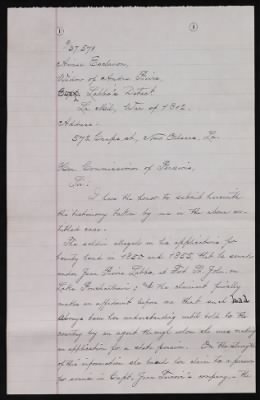 1
1
#37,571
Annie Enderson,
Widow of Andre Pierre,
Labbe's Detach.
La. Mil., War of 1812.
Address:
572 Craps st., New Orleans, La.
Hon. Commissioner of Pensions,
Sir:
I have the honor to submit herewith
the testimony taken by me in the above en-
titled case.
The soldier alleges in his applications for
bounty land in 1853 and 1855, that he served
under Jean Pierre Labbe, at Fort St. John, on
Lake Ponchartrain; & the claimant finally
makes an affidavit before me that such had
always been her understanding until told to the
contrary by an agent through whom she was making
an application for a state pension. On the strength
of this information she based her claim to a pension
for service in Capt. Jean 's company. The